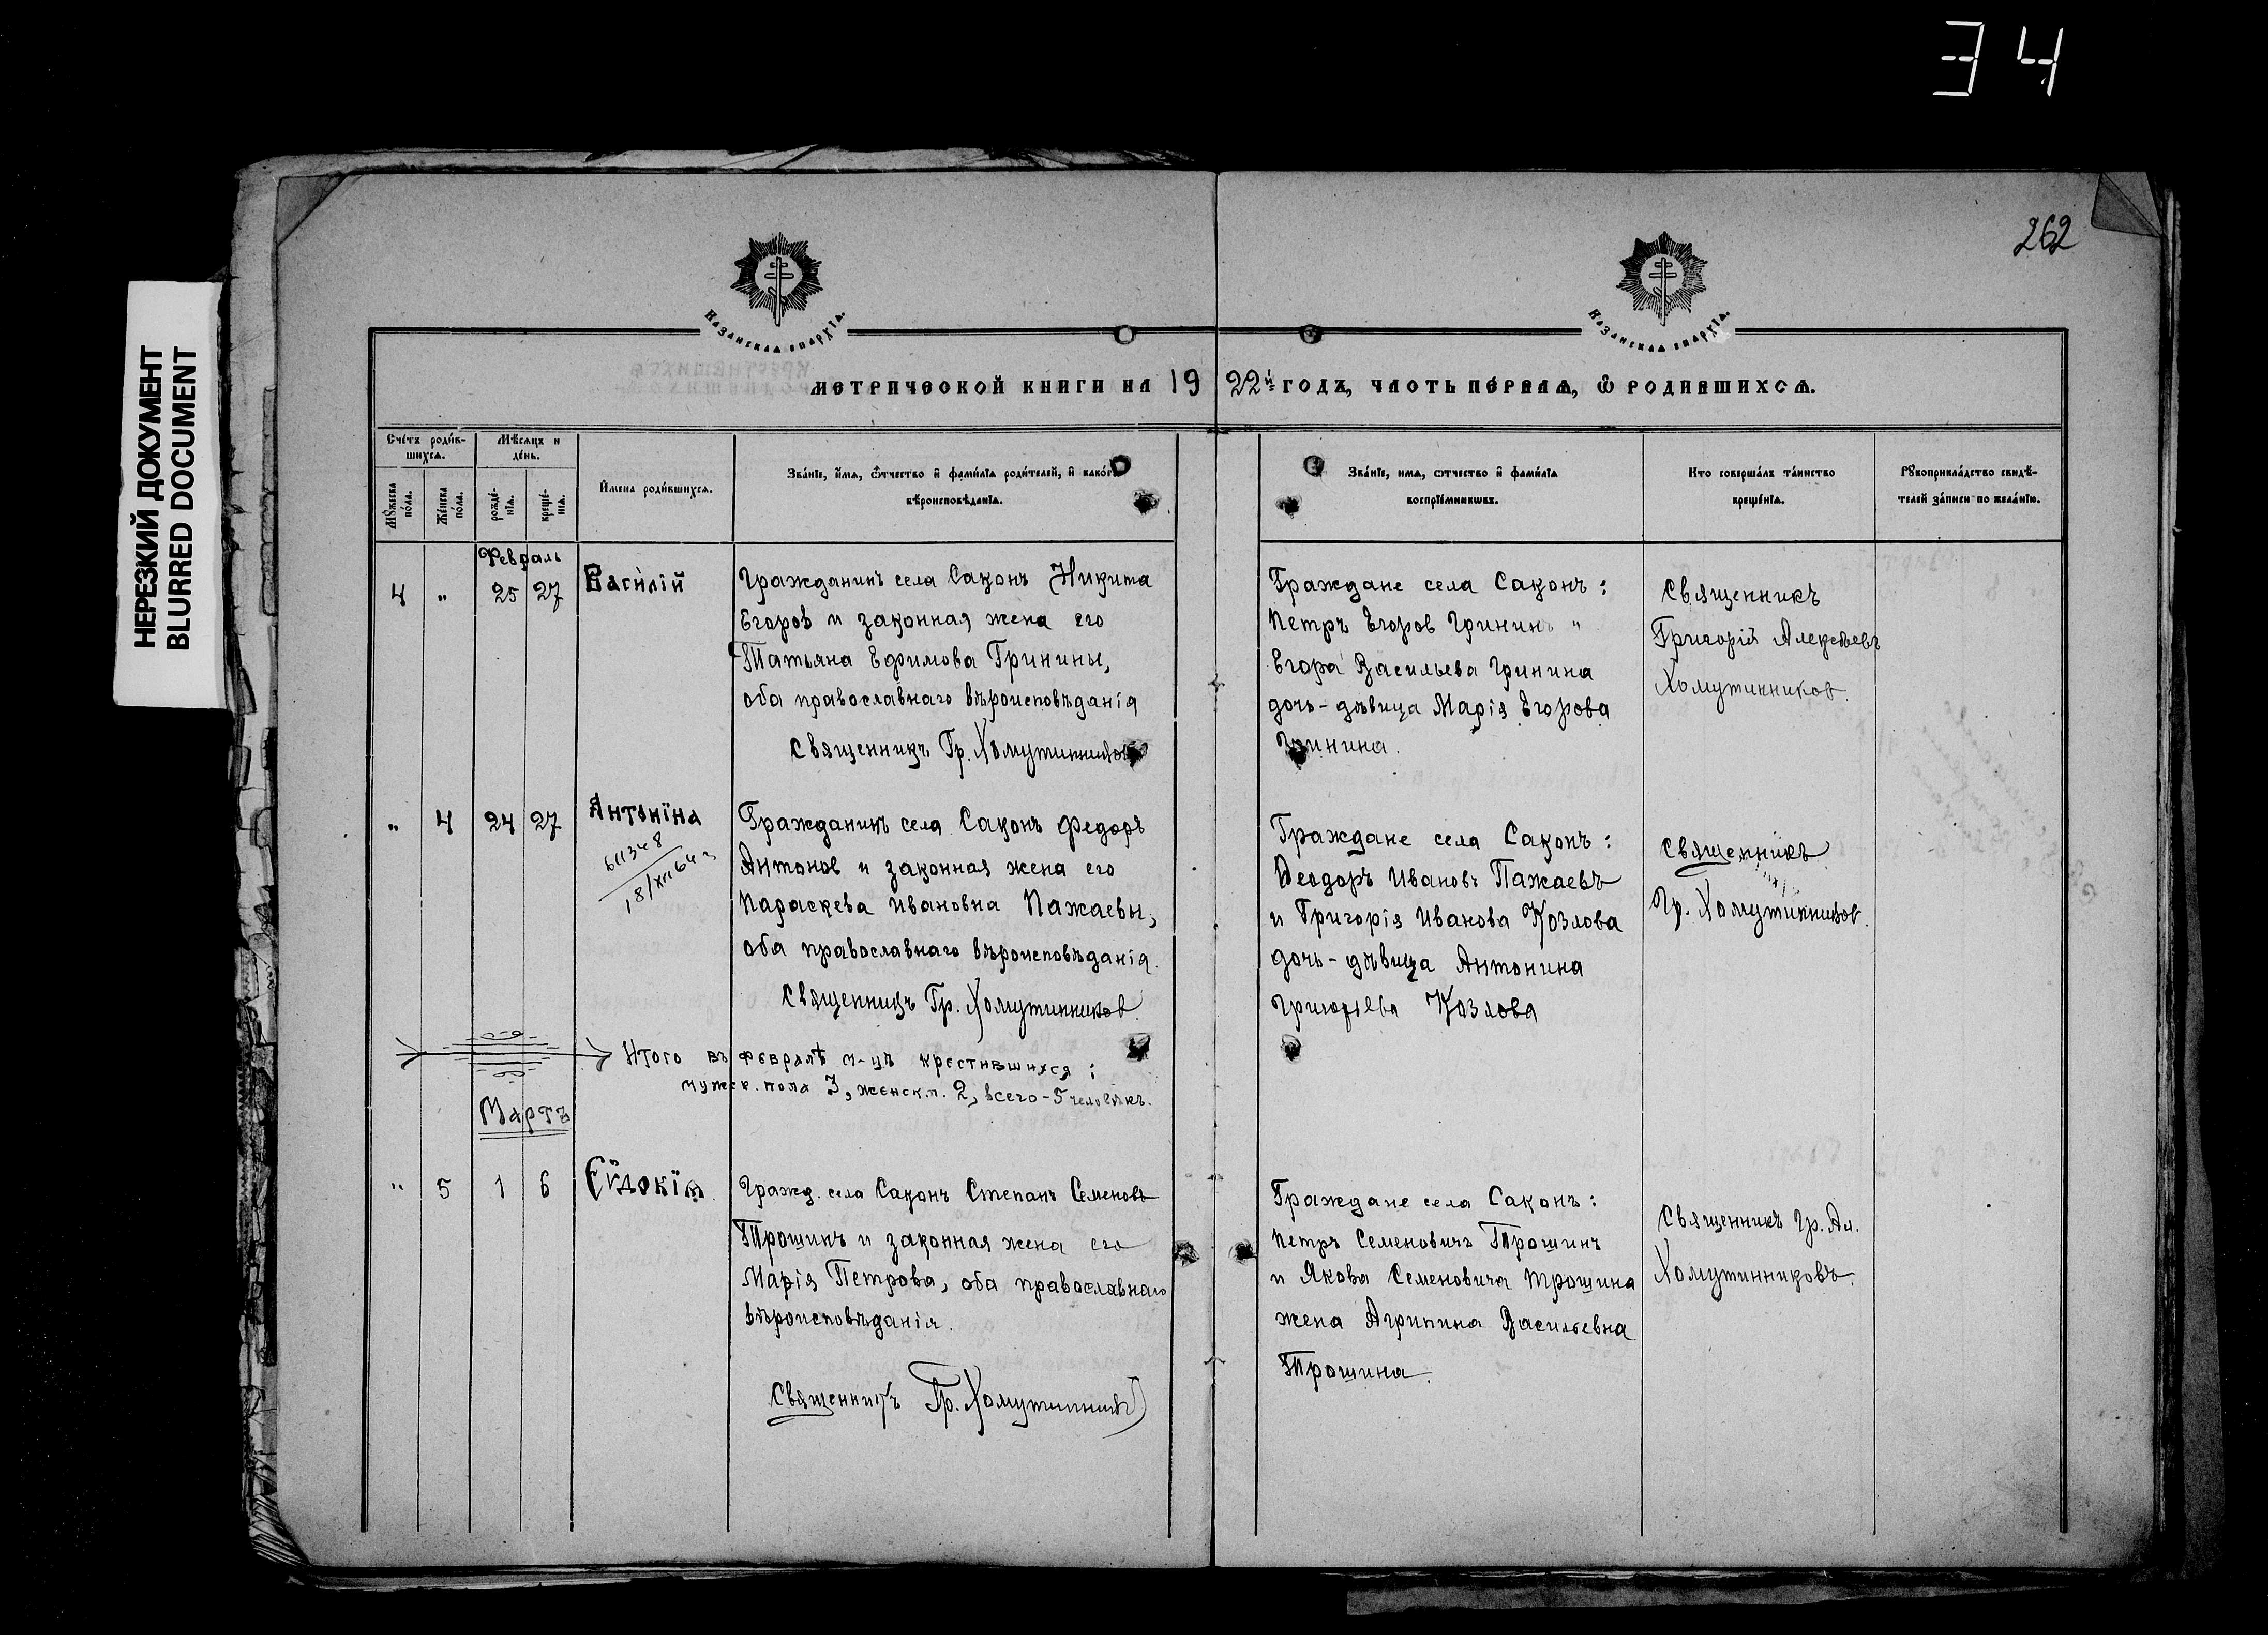 34
НЕРЕЗКИЙ ДОКУМЕНТ
BLURRED DOCUMENT
262
Казанская епархїа.
Казанская епархїа.
метрической книги на 1922й годъ, часть первая, ѿ родившихся.
Счетъ родившихся.
Мѣсяцъ и день.
Мꙋжеска пола.
Женска пола.
рожденїя.
крещенїя.
Имена родившихся.
Званїе, имя, ѿчество и фамилїя родителей, и какого
вѣроисповѣданїя.
Званїе, имя, ѿтчество и фамилїя
воспрїемниковъ.
Кто совершалъ таинство
крещенїя.
Рꙋкоприкладство свидѣ-
телей записи по желанїю.
Февраль
4 " 25 27 Василій
Гражданинъ села Саконъ Никита
Егоровъ и законная жена его
Татьяна Ефимова Гринины,
оба православнаго вѣроисповѣданія
Священникъ Гр. Хомутинников
Граждане села Саконъ:
Петръ Егоров Гринин "
Егора Васильева Гринина
дочь-дѣвица Марія Егорова
Гринина.
Священникъ
Григорій Алексѣевъ
Хомутинников.
" 4 24 27 Антонїна
18/XII
Гражданинъ села Саконъ Федоръ
Антонов и законная жена его
Параскева Ивановна Пажаевы,
оба православнаго вѣроисповѣданія.
Священникъ Гр. Хомутинников.
Граждане села Саконъ:
Ѳеодоръ Ивановъ Пажаевъ
и Григорія Иванова Козлова
дочь-дѣвица Антонина
Григорьева Козлова
Священникъ
Гр. Хомутинников.
Итого въ февралѣ м-цѣ крестившихся:
мужск. пола 3, женск.п. 2, всего-5 человѣкъ.
Мартъ
" 5 1 6 Еѵдокїя.
Гражд. села Саконъ Степанъ Семеновъ
Трошинъ и законная жена его
Марія Петрова, оба православнаго
вѣроисповѣданія.
Священникъ Гр. Хомутинников
Граждане села Саконъ:
Петръ Семеновичъ Трошинъ
и Якова Семеновича Трошина
жена Агрипина Васильевна
Трошина.
Священникъ Гр. Ал.
Хомутинниковъ.